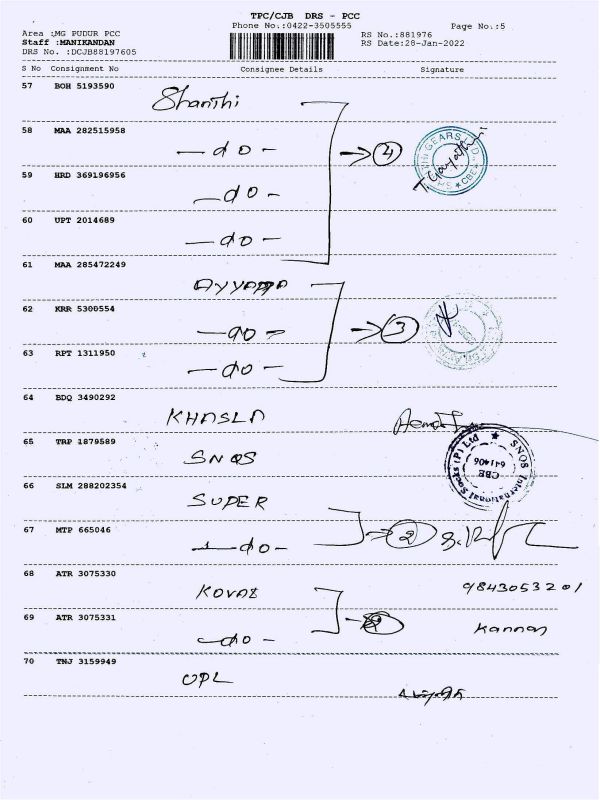 TPC/CJB DRS - PCC
Phone No.:0422-3505555 Page No.:5
Area :MG PUDUR PCC RS No.:881976
Staff :MANIKANDAN RS Date:28-Jan-2022
DRS No. :DCJB88197605
S No Consignment No Consignee Details Signature
57 BOH 5193590
Shanthi
58 MAA 282515958
-do- → 4
T. Gayathri
59 HRD 369196956
-do-
60 UPT 2014689
-do-
61 MAA 285472249
AYYAPPA
62 KRR 5300554
-do- → 3
63 RPT 1311950
-do-
64 BDQ 3490292
KHASLA
65 TRP 1879589
SNQS
SNQS International Socks (P) Ltd
CBE
641406
66 SLM 288202354
SUPER
67 MTP 665046
-do- → 2
68 ATR 3075330
KOVAI 9843053201
69 ATR 3075331
-do- Kannan
70 TNJ 3159949
UPL